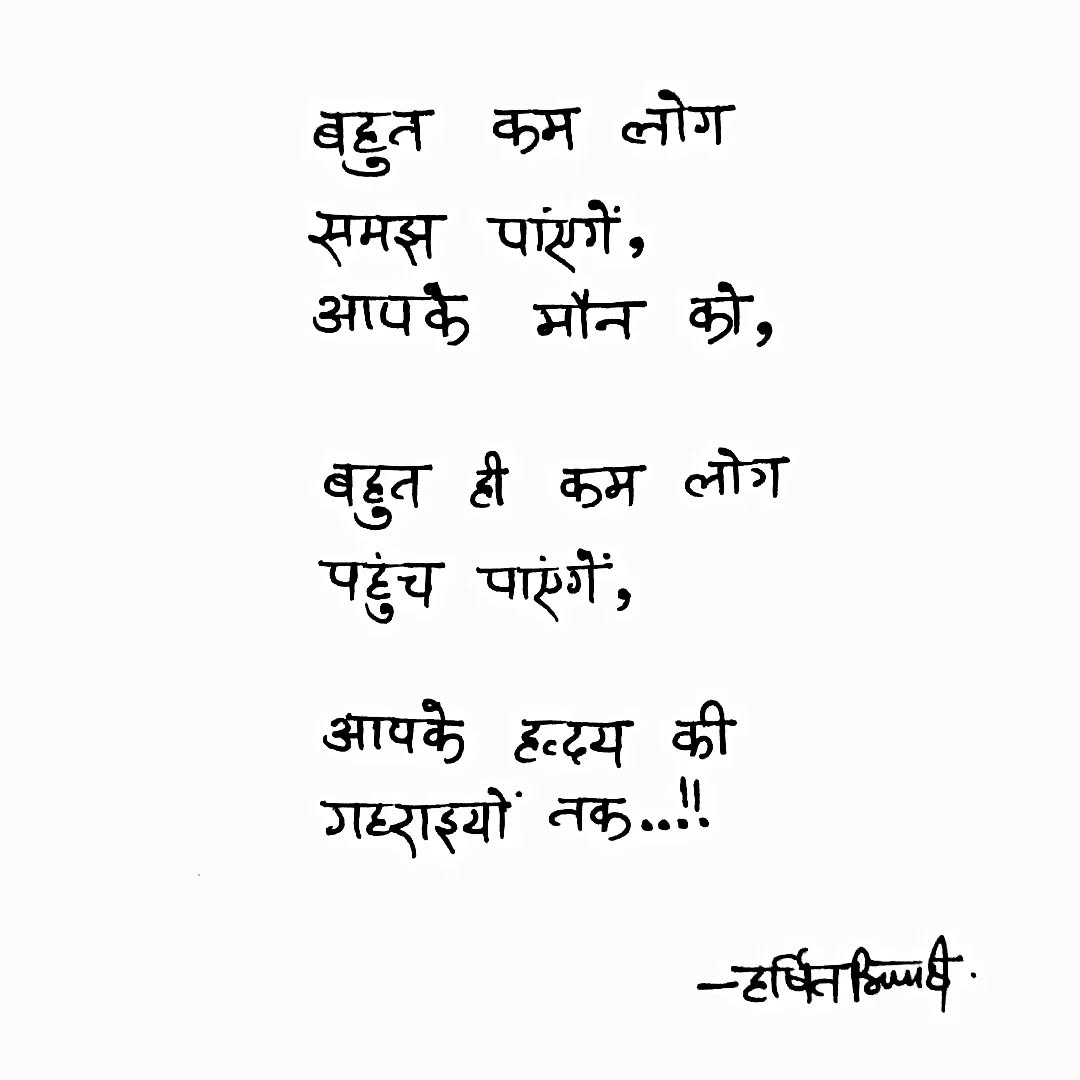 बहुत कम लोग
समझ पाएंगें,
आपके मौन को,
बहुत ही कम लोग
पहुंच पाएंगें,
आपके हृदय की
गहराइयों तक..!!
—हर्षित